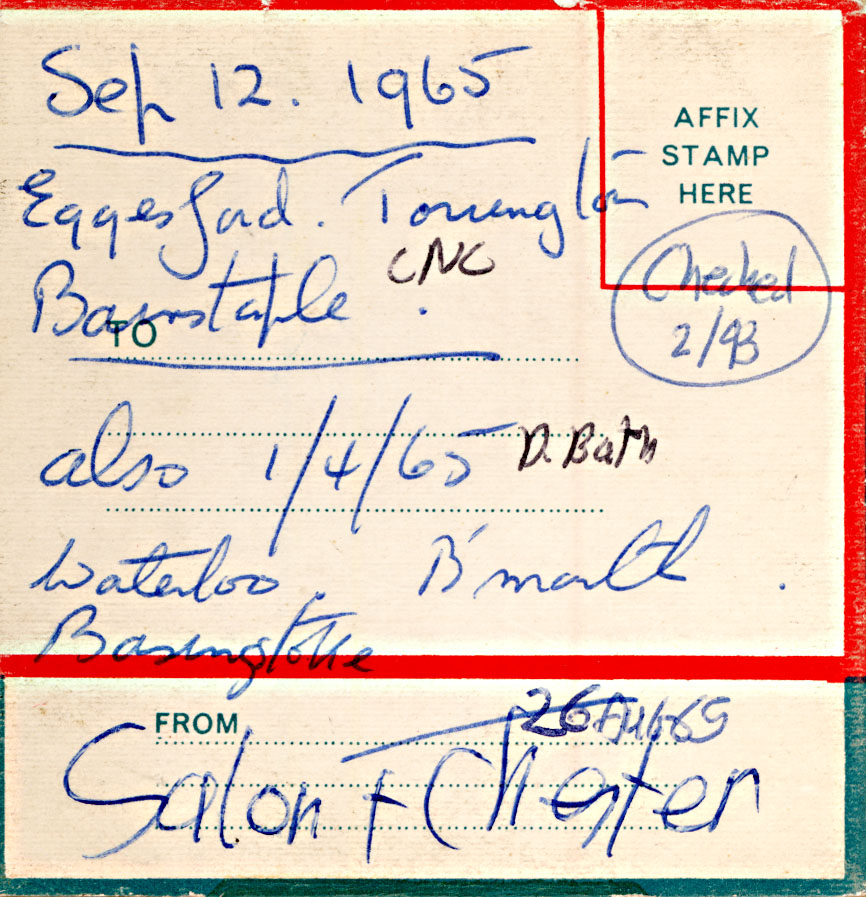 Sep 12. 1965
AFFIX
STAMP
HERE
Eggesford. Torrington
CNC
Barnstaple .
Checked
2/93
TO
also 1/4/65 D. Bath
Waterloo. B'mouth .
Basingstoke
FROM
26 AUG 65
Salon + Chester